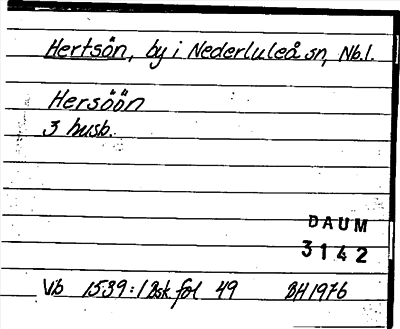 Hertsön, by i Nederluleå sn, Nb.l.
Hersöön
3 husb.
DAUM
3142
Vb 1539:1 Bsk fol 49 BH 1976